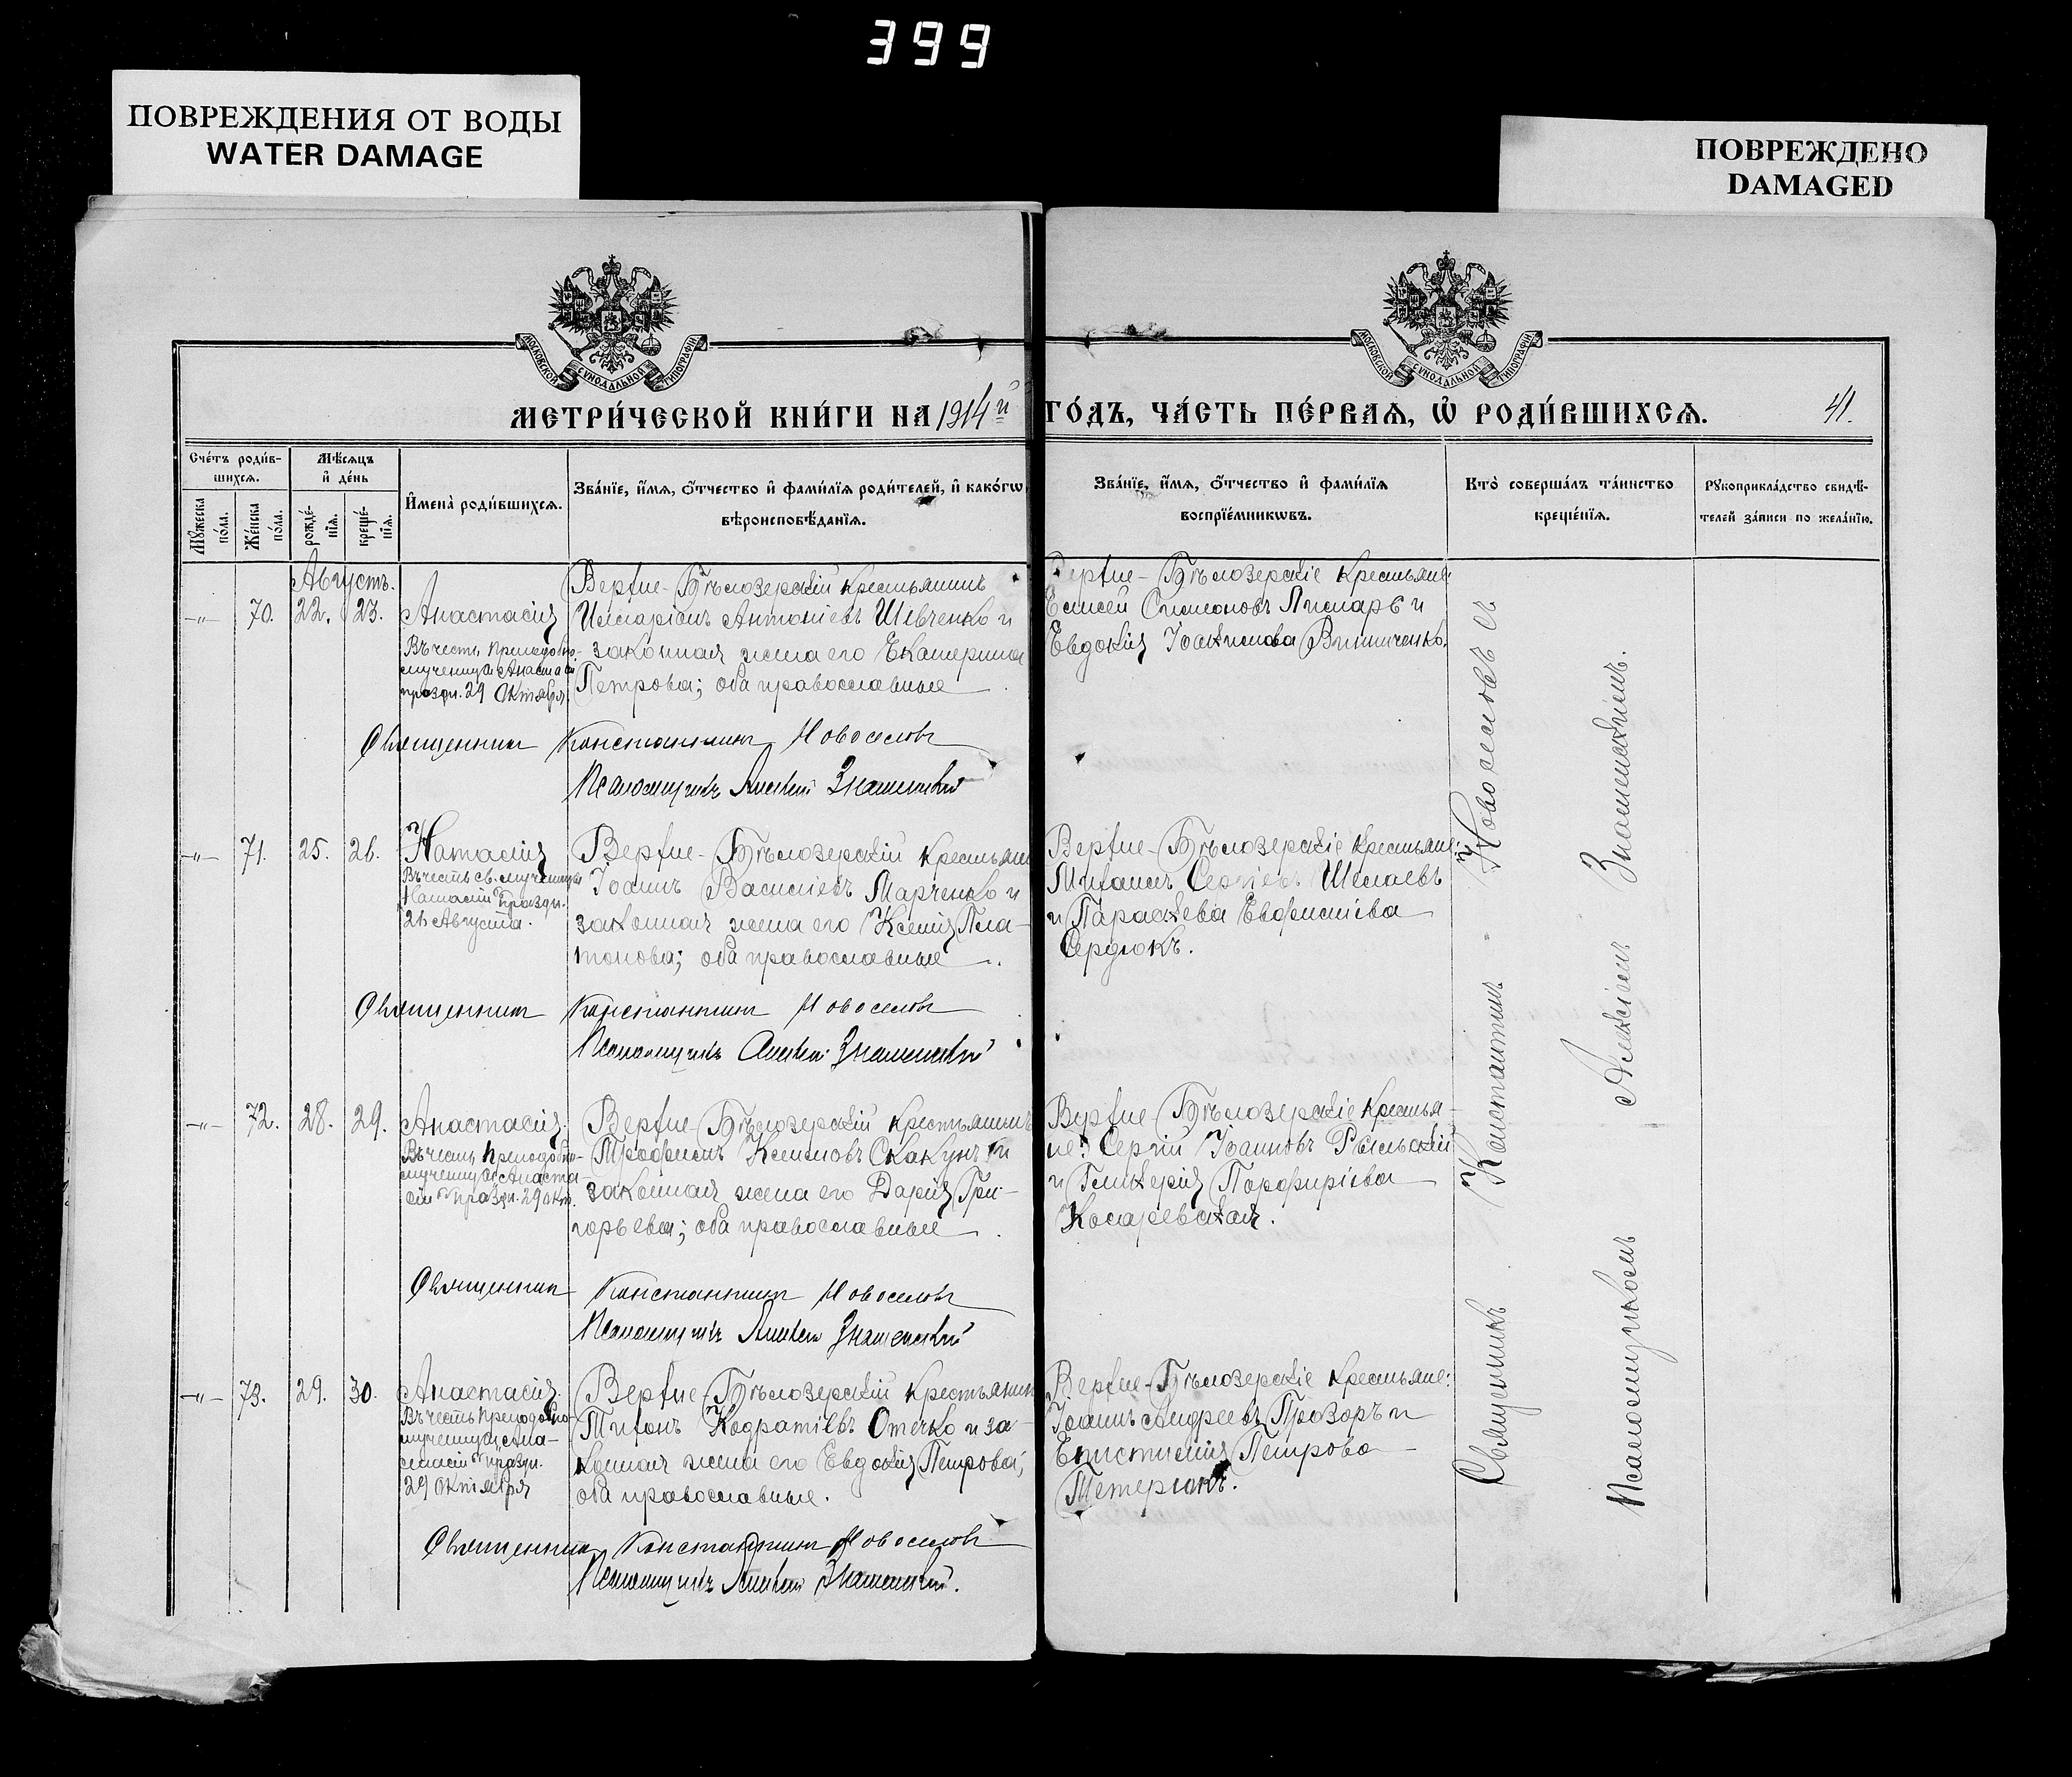 399
ПОВРЕЖДЕНИЯ ОТ ВОДЫ
WATER DAMAGE
ПОВРЕЖДЕНО
DAMAGED
МОСКОВСКОЙ СУНОДАЛЬНОЙ ТИПОГРАФІИ
МОСКОВСКОЙ СУНОДАЛЬНОЙ ТИПОГРАФІИ
МЕТРИ́ЧЕСКОЙ КНИ́ГИ НА 1914й ГО́ДЪ, ЧА́СТЬ ПЕ́РВАѦ, Ѽ РОДИ́ВШИХСѦ. 41.
Сче́тъ роди́в-
шихсѧ.
Мѣ́сѧцъ
и҆ де́нь
Мꙋ́жеска по́ла.
Же́нска по́ла.
рожде́-нїѧ.
креще́-нїѧ.
И҆мена̀ роди́вшихсѧ.
Зва́нїе, и҆́мѧ, ѻ҆́тчество и҆ фами́лїѧ роди́телей, и҆ како́гѡ
вѣроисповѣ́данїѧ.
Зва́нїе, и҆́мѧ, ѻ҆́тчество и҆ фами́лїѧ
воспрїе́мникѡвъ.
Кто̀ соверша́лъ та́инство
креще́нїѧ.
Рꙋкоприкла́дство свидѣ́-
телей за́писи по жела́нїю.
Августъ.
-„- 70. 22. 23. Анастасія
Въ честь преподобно-
мученицы Анастасіи
праздн. 29 Октября.
Верхне-Бѣлозерскій крестьянинъ
Иларіонъ Антоніевъ Шевченко и
законная жена его Екатерина
Петрова; оба православные
Верхне-Бѣлозерскіе крестьяне:
Елисей Симоновъ Писмаръ и
Евдокія Іоакимова Винниченко.
Священник Константинъ Новоселовъ
Псаломщикъ Алексѣй Знаменскій
-„- 71. 25. 26. Наталія
Въ честь св. мученицы
Наталіи праздн.
26 Августа.
Верхне-Бѣлозерскій крестьянин
Іоаннъ Василіевъ Марченко и
законная жена его Ксенія Пла-
тонова; оба православные
Верхне-Бѣлозерскіе крестьяне:
Михаилъ Сергіевъ Шелаевъ
и Параскева Евфиміева
Сердюкъ.
Священник Константинъ Новоселовъ
Псаломщикъ Алексѣй Знаменскій
-„- 72. 28. 29. Анастасія.
Въ честь преподобно-
мученицы Анаста-
сіи праздн. 29 Окт.
Верхне-Бѣлозерскій крестьянинъ
Трофимъ Скакунъ и
законная жена его Дарія Гри-
горьева; оба православные
Верхне-Бѣлозерскіе крестья-
не: Сергій Іоанновъ Рѣльскій
и Гликерія Порфиріева
Косаревская.
Священник Константинъ Новоселовъ
Псаломщикъ Алексѣй Знаменскій
-„- 73. 29. 30. Анастасія.
Въ честь преподобно-
мученицы Ана-
стасіи праздн.
29 Октября
Верхне-Бѣлозерскій крестьянин
Тихонъ Кодратіевъ Отечко и за-
конная жена его Евдокія Петрова;
оба православные.
Верхне-Бѣлозерскіе крестьяне:
Іоаннъ Андреевъ Прозоръ и
Епистимія Петрова
Тетерюкъ.
Священник Константинъ Новоселовъ
Псаломщикъ Алексѣй Знаменскій.
Священникъ Константинъ Новоселовъ съ
Псаломщикомъ Алексіемъ Знаменскимъ.